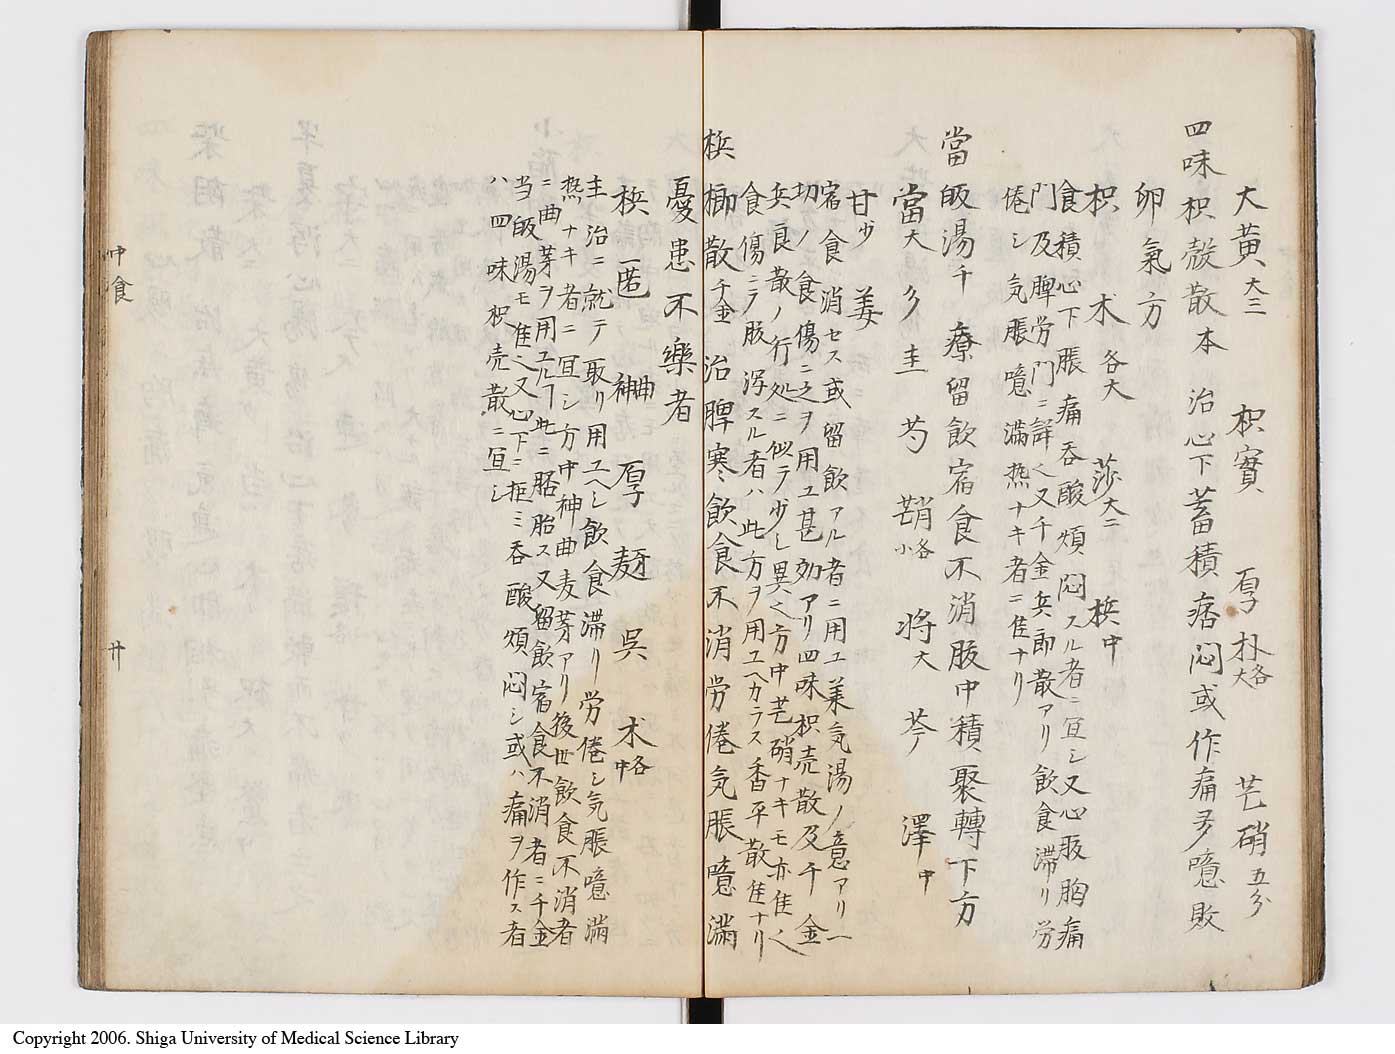 大黄大三 枳實 厚朴各大 芒硝五分
四味枳殻散本 治心下蓄積痞悶或作痛多噫敗
卵氣方
枳 朮各大 莎大二 梹中
食積心下脹痛呑酸煩悶スル者ニ宜シ又心腹胸痛
門及脾労門ニ詳也又千金兵郎散アリ飲食滞リ労
倦シ気脹噫満熱ナキ者ニ佳ナリ
當皈湯千 療留飲宿食不消腹中積聚轉下方
當大 夕 圭 芍 硝各小 将大 芩 澤中
甘少 姜
宿食消セス或留飲アル者ニ用ユ *気湯ノ意アリ一
切ノ食傷ニ之ヲ用ユ甚効アリ四味枳売散及千金
兵良散ノ行処ニ似テ少シ異也方中芒硝ナキモ亦佳也
食傷ニテ腹瀉スル者ハ此方ヲ用ユヘカラス香平散佳ナリ
梹榔散千金 治脾寒飲食不消労倦気脹噫満
憂患不樂者
梹一匕 神曲 厚 麺 呉 朮各中
主治ニ就テ取リ用ユヘシ飲食滞リ労倦シ気脹噫満
熱ナキ者ニ宜シ方中神曲麦芽アリ後世飲食不消者
ニ曲芽ヲ用ユルヿ此ニ胚胎ス又留飲宿食不消者ニ千金
当皈湯モ佳也又心下ニ拒ミ呑酸煩悶シ或ハ痛ヲ作ス者
ハ四味枳売散ニ宜シ
仲食
廿
Copyright 2006. Shiga University of Medical Science Library